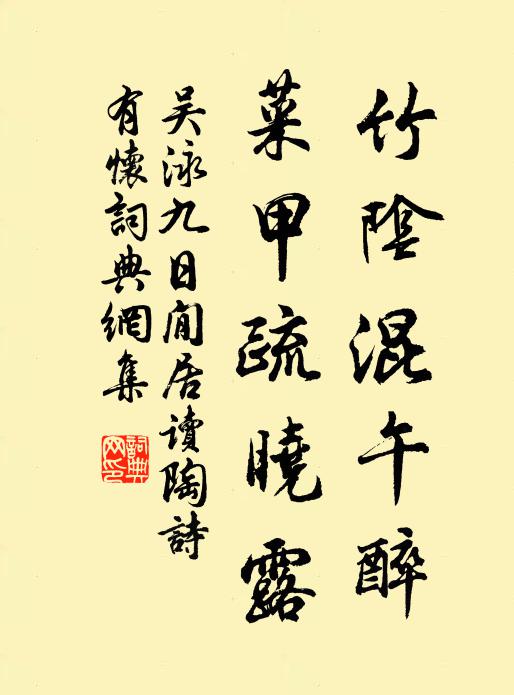 竹陰混午醉
菜甲疏曉露
吴泳九日閒居读陶詩
有懷詞典網集
詞典网印